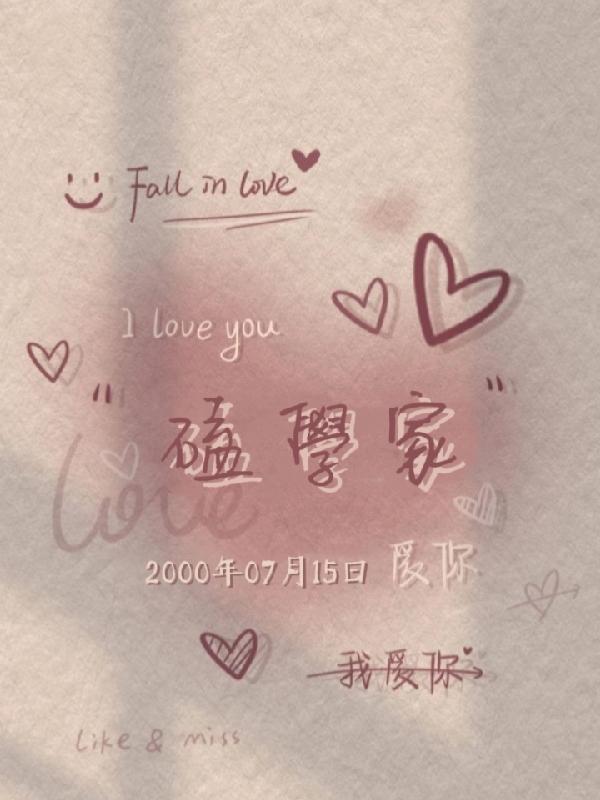 Fall in love
I love you
"磕學家"
love
2000年07月15日 愛你
我愛你
Like & miss